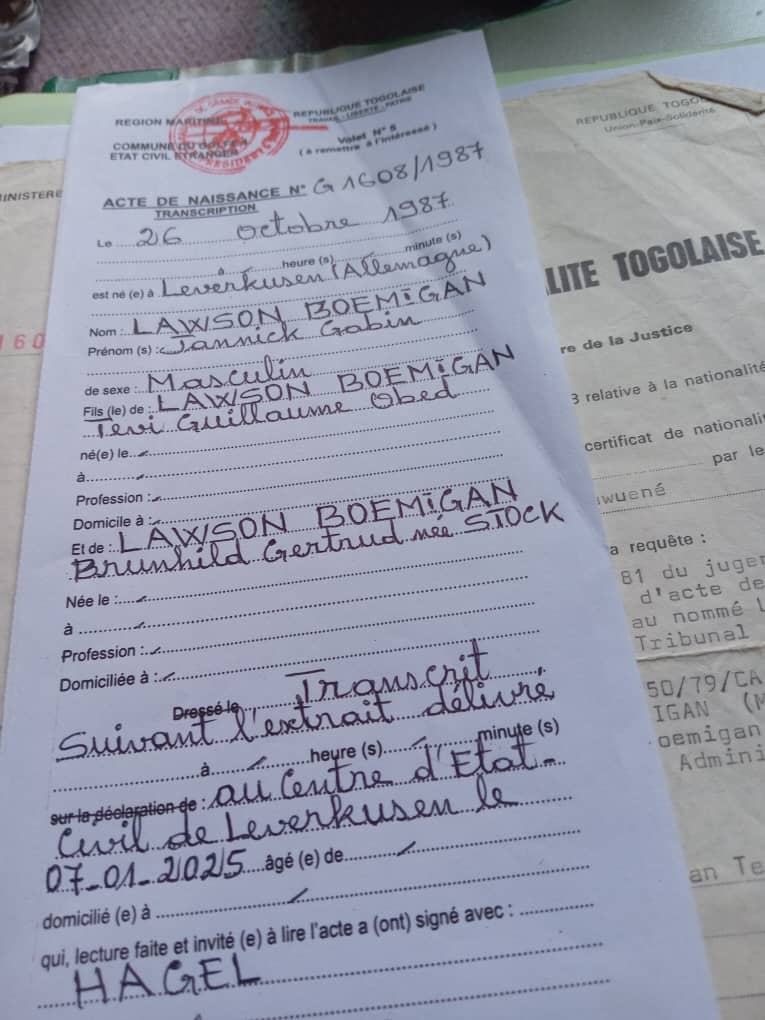 INISTERE
160
REGION MARITIME
COMMUNE DU GOLFE
ETAT CIVIL ETRANGER
PRESIDENT
REPUBLIQUE TOGOLAISE
TRAVAIL - LIBERTE - PATRIE
Volet N° 5
( à remettre à l'intéressé )
ACTE DE NAISSANCE N° G 1608/1987
TRANSCRIPTION
Le 26 octobre 1987
à heure (s) minute (s)
est né (e) à Leverkusen (Allemagne)
Nom : LAWSON BOEMIGAN
Prénom (s) : Jannick Gabin
de sexe : Masculin
Fils (le) de : LAWSON BOEMIGAN
Tevi Guillaume Obed
né(e) le
à
Profession :
Domicile à :
Et de : LAWSON BOEMIGAN
Brunhild Gertrud née STOCK
Née le :
à
Profession :
Domiciliée à :
Dressé le Transcrit
Suivant l'extrait délivré
à heure (s) minute (s)
sur la déclaration de : au Centre d'Etat-
Civil de Leverkusen le
07-01-2025 âgé (e) de
domicilié (e) à
qui, lecture faite et invité (e) à lire l'acte a (ont) signé avec :
HAGEL
REPUBLIQUE TOGO
Union-Paix-Solidarité
LITE TOGOLAISE
re de la Justice
3 relative à la nationalité
certificat de nationali
par le
wuené
a requête :
81 du juge
d'acte de
au nommé L
Tribunal
50/79/CA
IGAN (M
oemigan
Admini
an Te